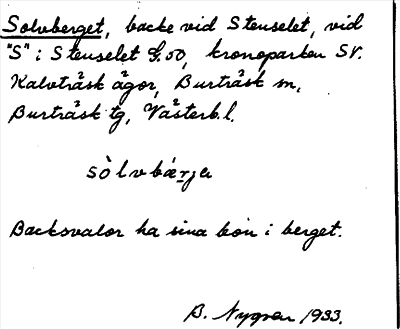 Solvberget, backe vid Stenselet, vid
"S" i Stenselet G. 00, kronoparken SV.
Kalvträsk ägor, Burträsk sn,
Burträsk tg, Västerb. l.
sòlvbárja
Backsvalor ha sina bon i berget.
B. Nygren 1933.